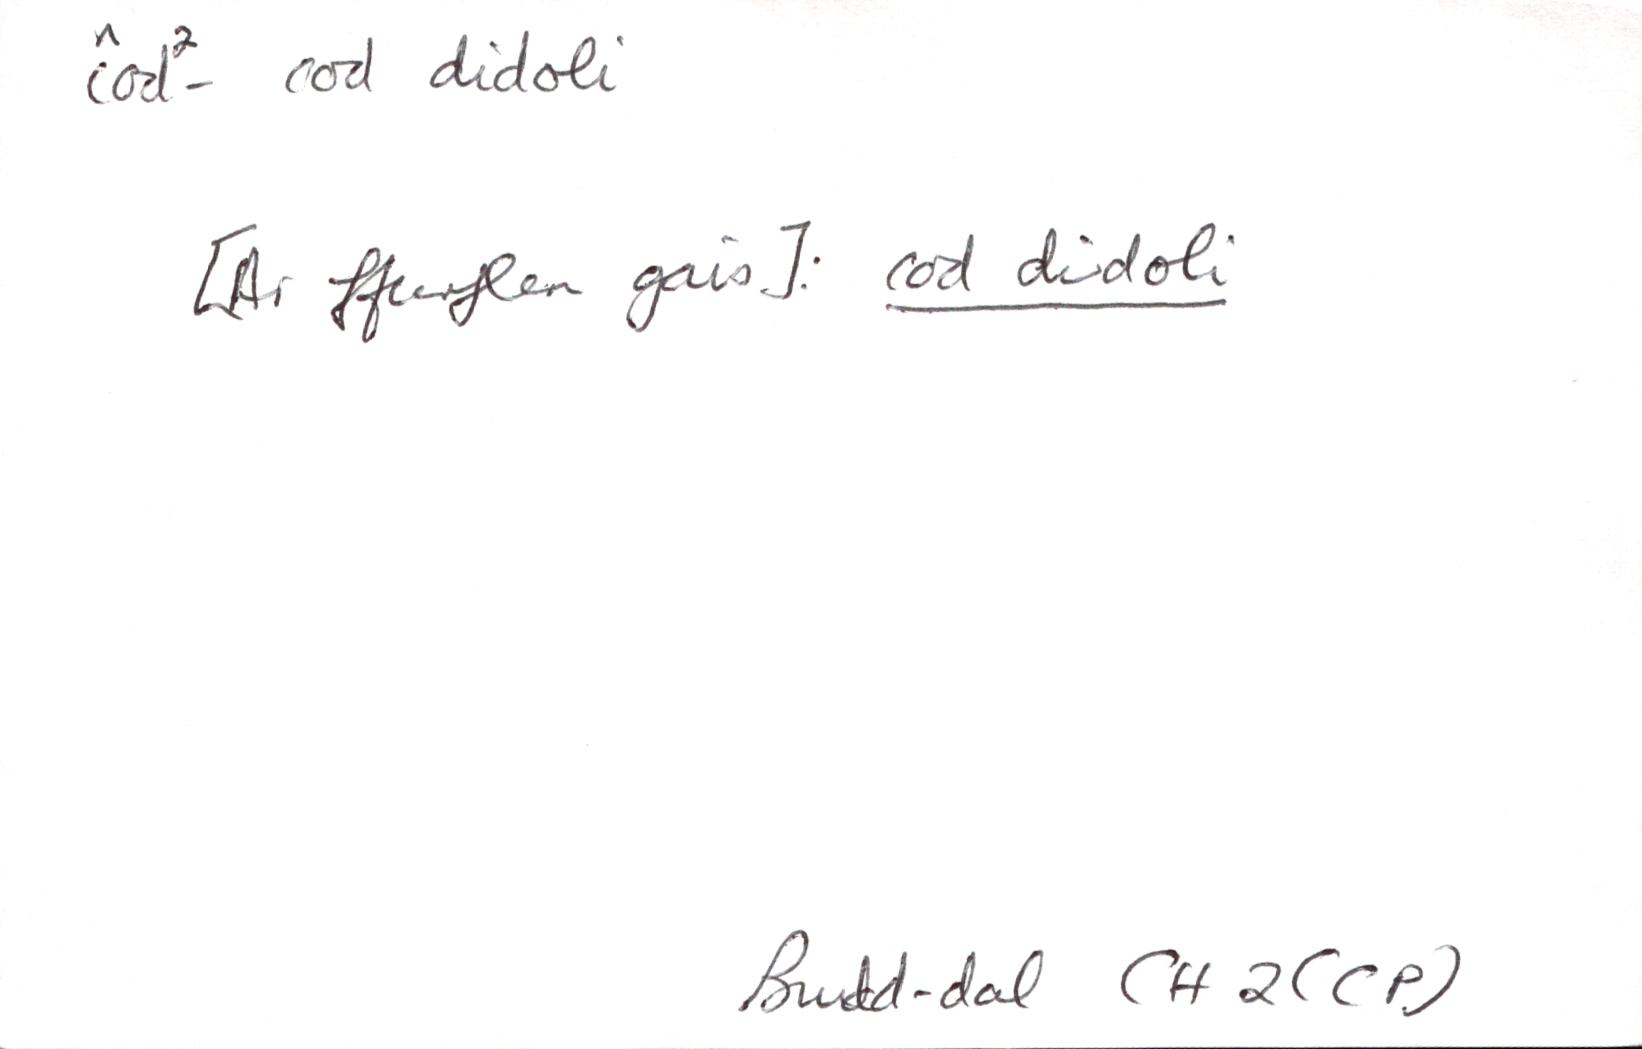 côd²- cod didoli
[Ar ffurflen gais]: cod didoli
Budd-dal CH2(CP)